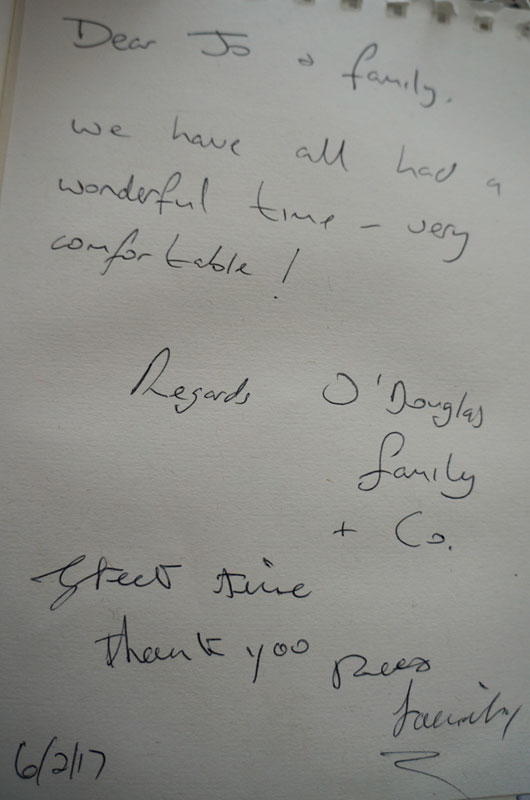 Dear Jo & family.
we have all had a
wonderful time - very
comfortable!
Regards O'Douglas
family
+ Co.
Great time
thank you
family
6/2/17